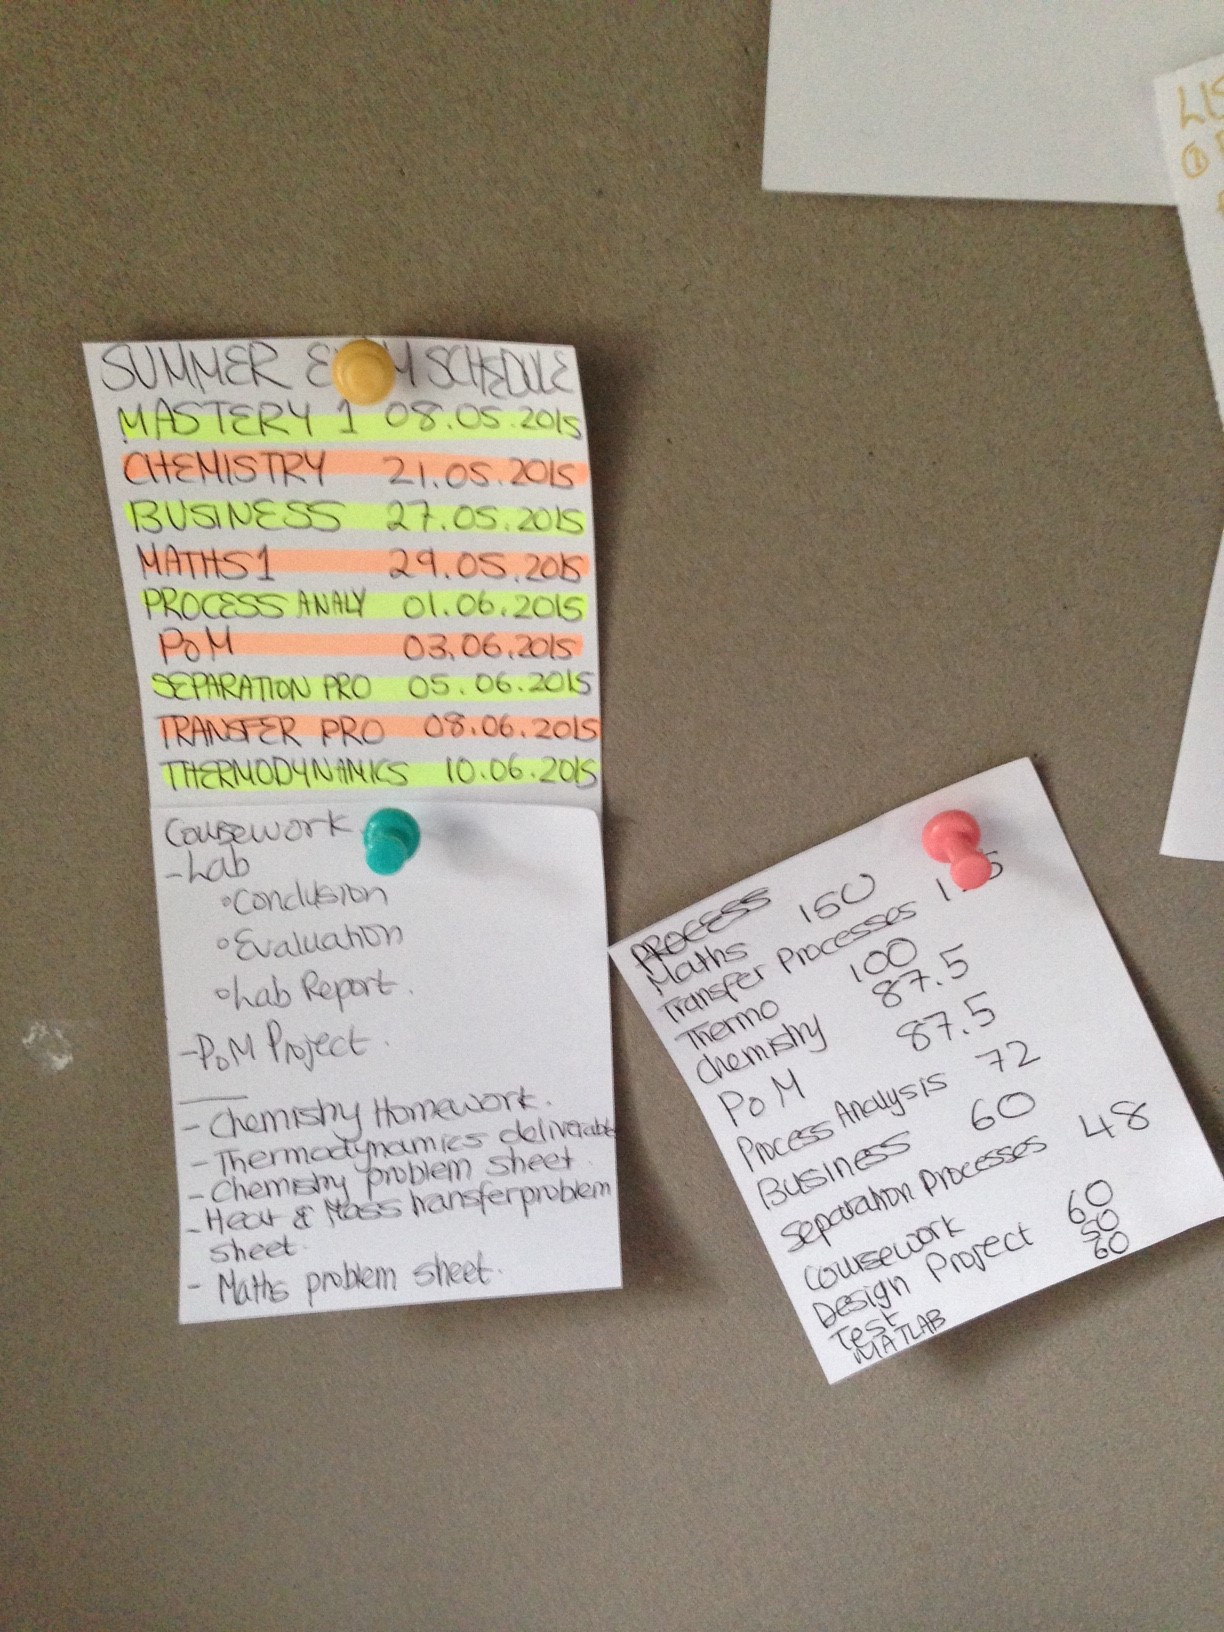 SUMMER EXAM SCHEDULE
MASTERY 1 08.05.2015
CHEMISTRY 21.05.2015
BUSINESS 27.05.2015
MATHS 1 29.05.2015
PROCESS ANALY 01.06.2015
PoM 03.06.2015
SEPARATION PRO 05.06.2015
TRANSFER PRO 08.06.2015
THERMODYNAMICS 10.06.2015
Coursework
- Lab
° Conclusion
° Evaluation
° Lab Report.
- PoM Project.
- Chemistry Homework.
- Thermodynamics deliverable
- Chemistry problem sheet.
- Heat & Mass transfer problem
sheet.
- Maths problem sheet.
PROCESS
Maths 150
Transfer Processes
Thermo 100
Chemistry 87.5
PoM 87.5
Process Analysis 72
Business 60
Separation Processes 48
Coursework
Design Project 60
Test 50
MATLAB 60
LIS
①